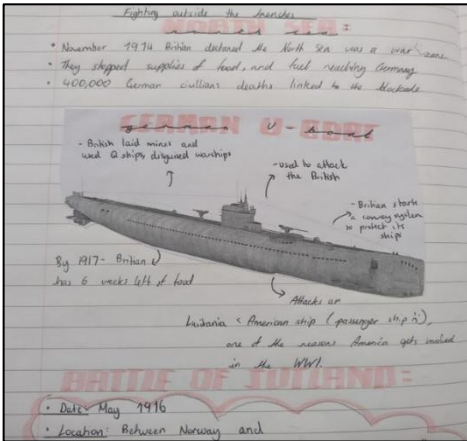 Fighting outside the trenches
NORTH SEA:
• November 1914 Britian declared the North Sea was a war zone
• They stopped supplies of food, and fuel reaching Germany
• 400,000 German civilians deaths linked to the blockade
GERMAN U-BOAT
- British laid mines and
used Q ships, disguised warships
- used to attack
the British
- Britian starts
a convoy system
to protect its
ships
By 1917 - Britian
has 6 weeks left of food
Attacks on
Lusitania < American ship (passenger ship),
one of the reasons America gets involved
in the WW1.
BATTLE OF JUTLAND:
• Date: May 1916
• Location: Between Norway and